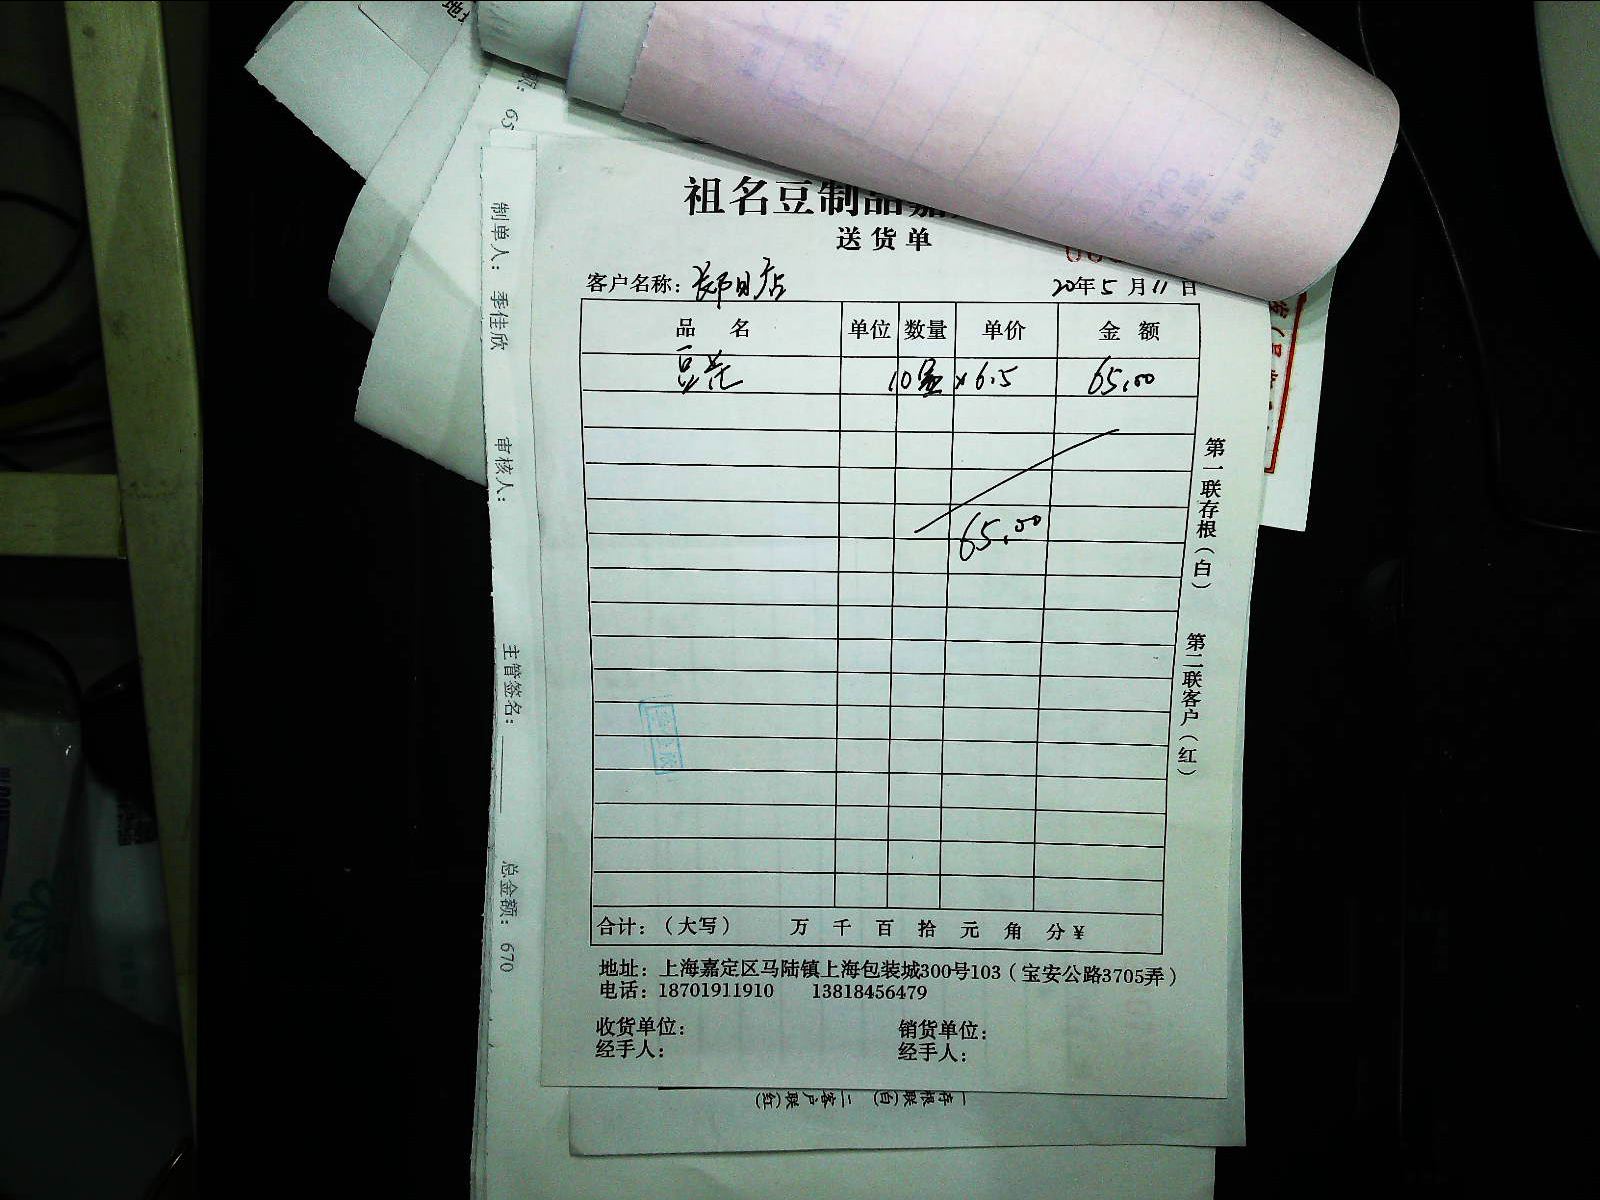 祖名豆制品嘉
送货单
客户名称：
20年5月11日
品名 单位 数量 单价 金额
豆花 10盒 x6.5 65.00
65.00
合计：（大写） 万 千 百 拾 元 角 分 ¥
地址：上海嘉定区马陆镇上海包装城300号103（宝安公路3705弄）
电话：18701911910 13818456479
收货单位： 销货单位：
经手人： 经手人：
第一联存根（白） 第二联客户（红）
制单人：季佳欣 审核人： 主管签名： 总金额：670
一存根联(白) 二客户联(红)